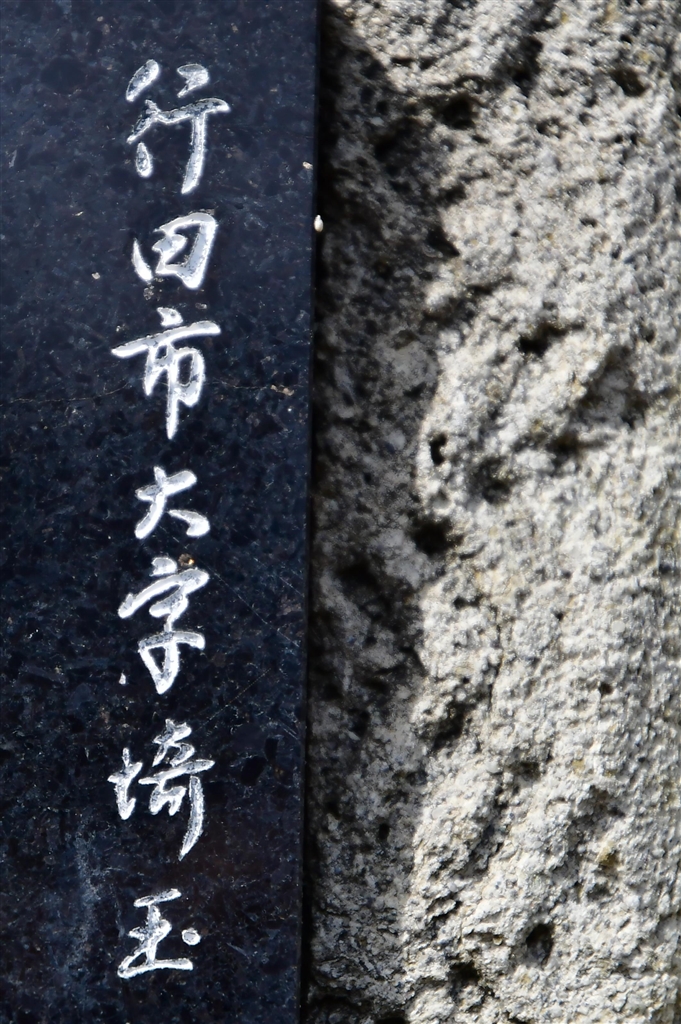 行田市大字埼玉